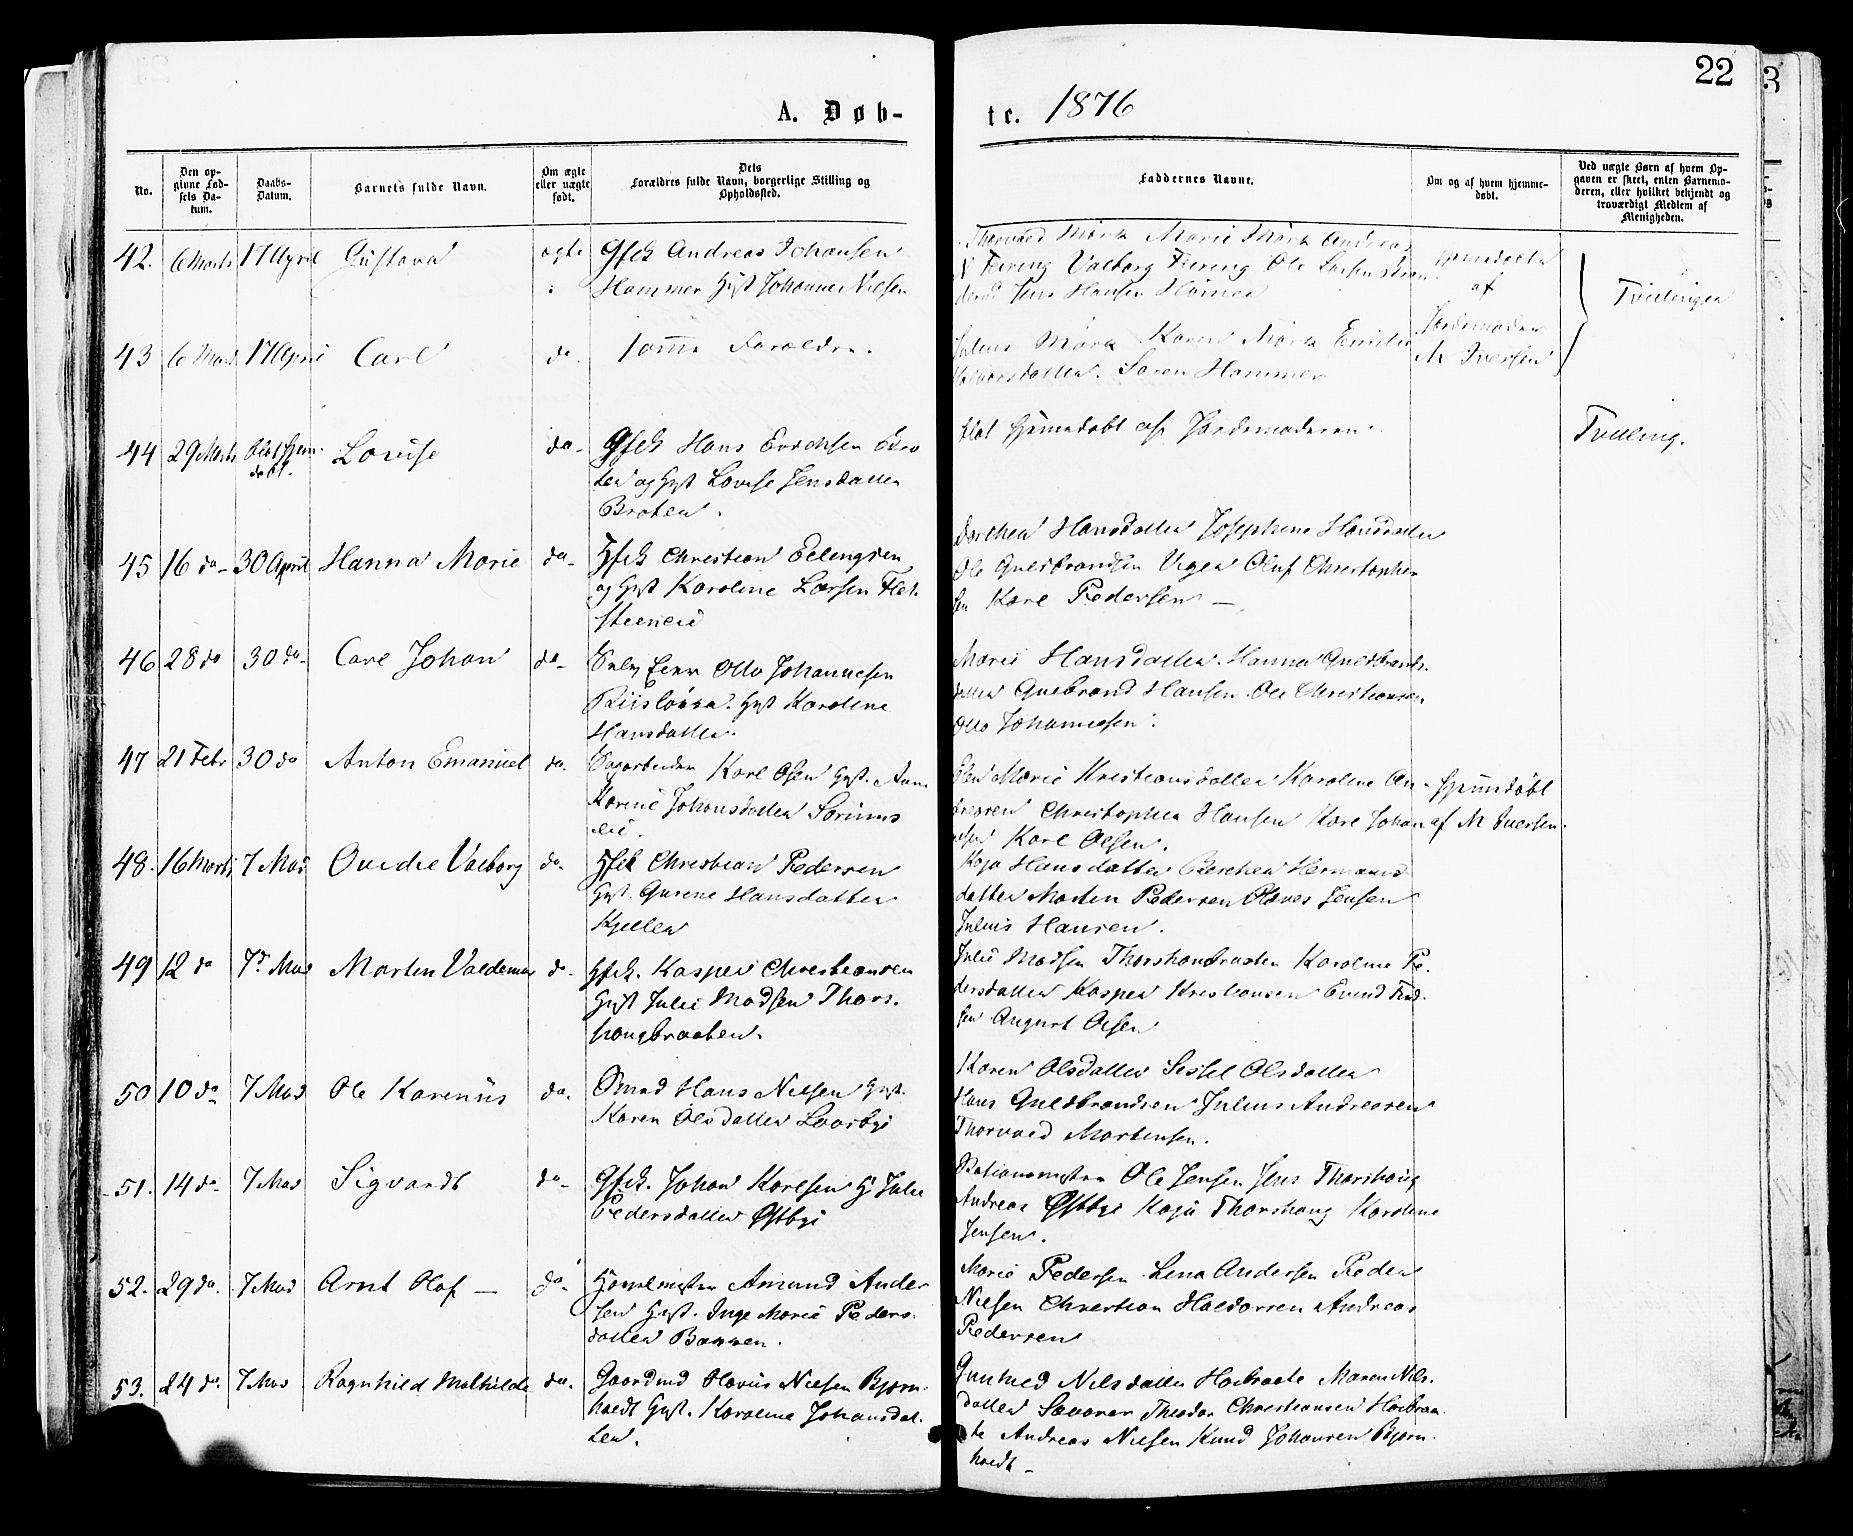 22
A. Døb-
te. 1876
No.
Den op-
givne Fød-
sels Da-
tum.
Daabs-
Datum.
Barnets fulde Navn.
Om ægte
eller uægte
født.
Dets
Forældres fulde Navn, borgerlige Stilling og
Opholdssted.
Faddernes Navne.
Om og af hvem hjemme-
døbt.
Ved uægte Børn af hvem Op-
gaven er skeet, enten Barnemo-
deren, eller hvilket bekjendt og
troværdigt Medlem af
Menigheden.
42. 6 Marts 17 April Gustava ægte Gfsk Andreas Johansen
Hammer Hust Johanne Nilsen
Thorvald Mørk Marie Mørk Andreas
N Fering Valborg Fering Ole
Jens Hansen
hjemdøbte
af
Jordemoder
M Iversen
Tvillinger
43 6 Marts 17 April Carl do. samme Forældre.
Julius Mørk Karen Mørk Emilie
Halvorsdatter. Søren Hammer
44 29 Marts blot hjem-
døbt. Lovise do- Gfsk Hans Erichsen Bro
ten og Hust Lovise Jensdatter
Broten.
blot hjemmedøbt af Jordemoderen.
Tvilling.
45 16 do- 30 April Hanna Marie do- Hfsk Christian Ellingsen
og Hust Karoline Larsen
Dorthea Hansdatter Josephine Hansdatter
Ole Guldbrandsen Oluf Christopher
sen Karl Pedersen —
46 28 do 30 do- Carl Johan do- Otto Johannesen
Hust Karoline
Hansdatter.
Marie Hansdatter. Hanna Guldbrands-
datter Guldbrand Hansen. Ole Christiansen
Otto Johannesen.
47 21 Febr 30 do Anton Emanuel do. Sagarbeider Karl Olsen Hust. Anne
Karine Johansdatter Sørums
eie.
Elen Marie Kristiansdatter Karoline An-
dresen Christopher Hansen Karl Johan
Karl Olsen.
hjemdøbt
af M Iversen.
48. 16 Marts 7 Mai Ovidie Valborg do- Hfsk Christian Pedersen
Hust. Gurine Hansdatter
Kjeller
Kaja Hansdatter Berthea Hermans-
datter Morten Pedersen Olaves Jensen
Julius Hansen.
49 12 do 7de Mai Morten Valdemar do- Hfsk. Kasper Christiansen
Hust Julie Madsen Thors-
haugbraaten.
Julie Madsen Thorshaubraaten Karoline Pe-
dersdatter Kasper Kristiansen
sen August Olsen
50 10 do 7 Mai Ole Karenius do. Smed Hans Nilsen Hust.
Karen Olsdatter Laarbye
Karen Olsdatter Sissel Olsdatter
Hans Guldbrandsen Julius Andresen
Thorvald Mortensen.
51. 14 do- 7 Mai Sigvardt do- Gfsk. Johan Karlsen H Julie
Pedersdatter Østbye
Stationsmester Ole Jensen Jens Thorshaug
Andreas Østbye Kaja Thorshaug Karoline
Jensen.
52. 29 do. 7 Mai Arnt Olaf — do. Amund Ander
sen Hust. Inge Marie Peders-
datter Bakken.
Marie Pedersen Lena Andersen Peder
Nilsen Christian Haldorsen Andreas
Pedersen
53. 24 do. 7 Mai Ragnhild Mathilde do. Gaardmd Olavus Nilsen Bjørn-
holdt Hust. Karoline Johansdat-
ter.
Gunhild Nilsdatter Holbraate Maren Nils-
datter Theodor Christiansen Holbraa
te Andreas Nilsen Knud Johansen Bjørn-
holdt —